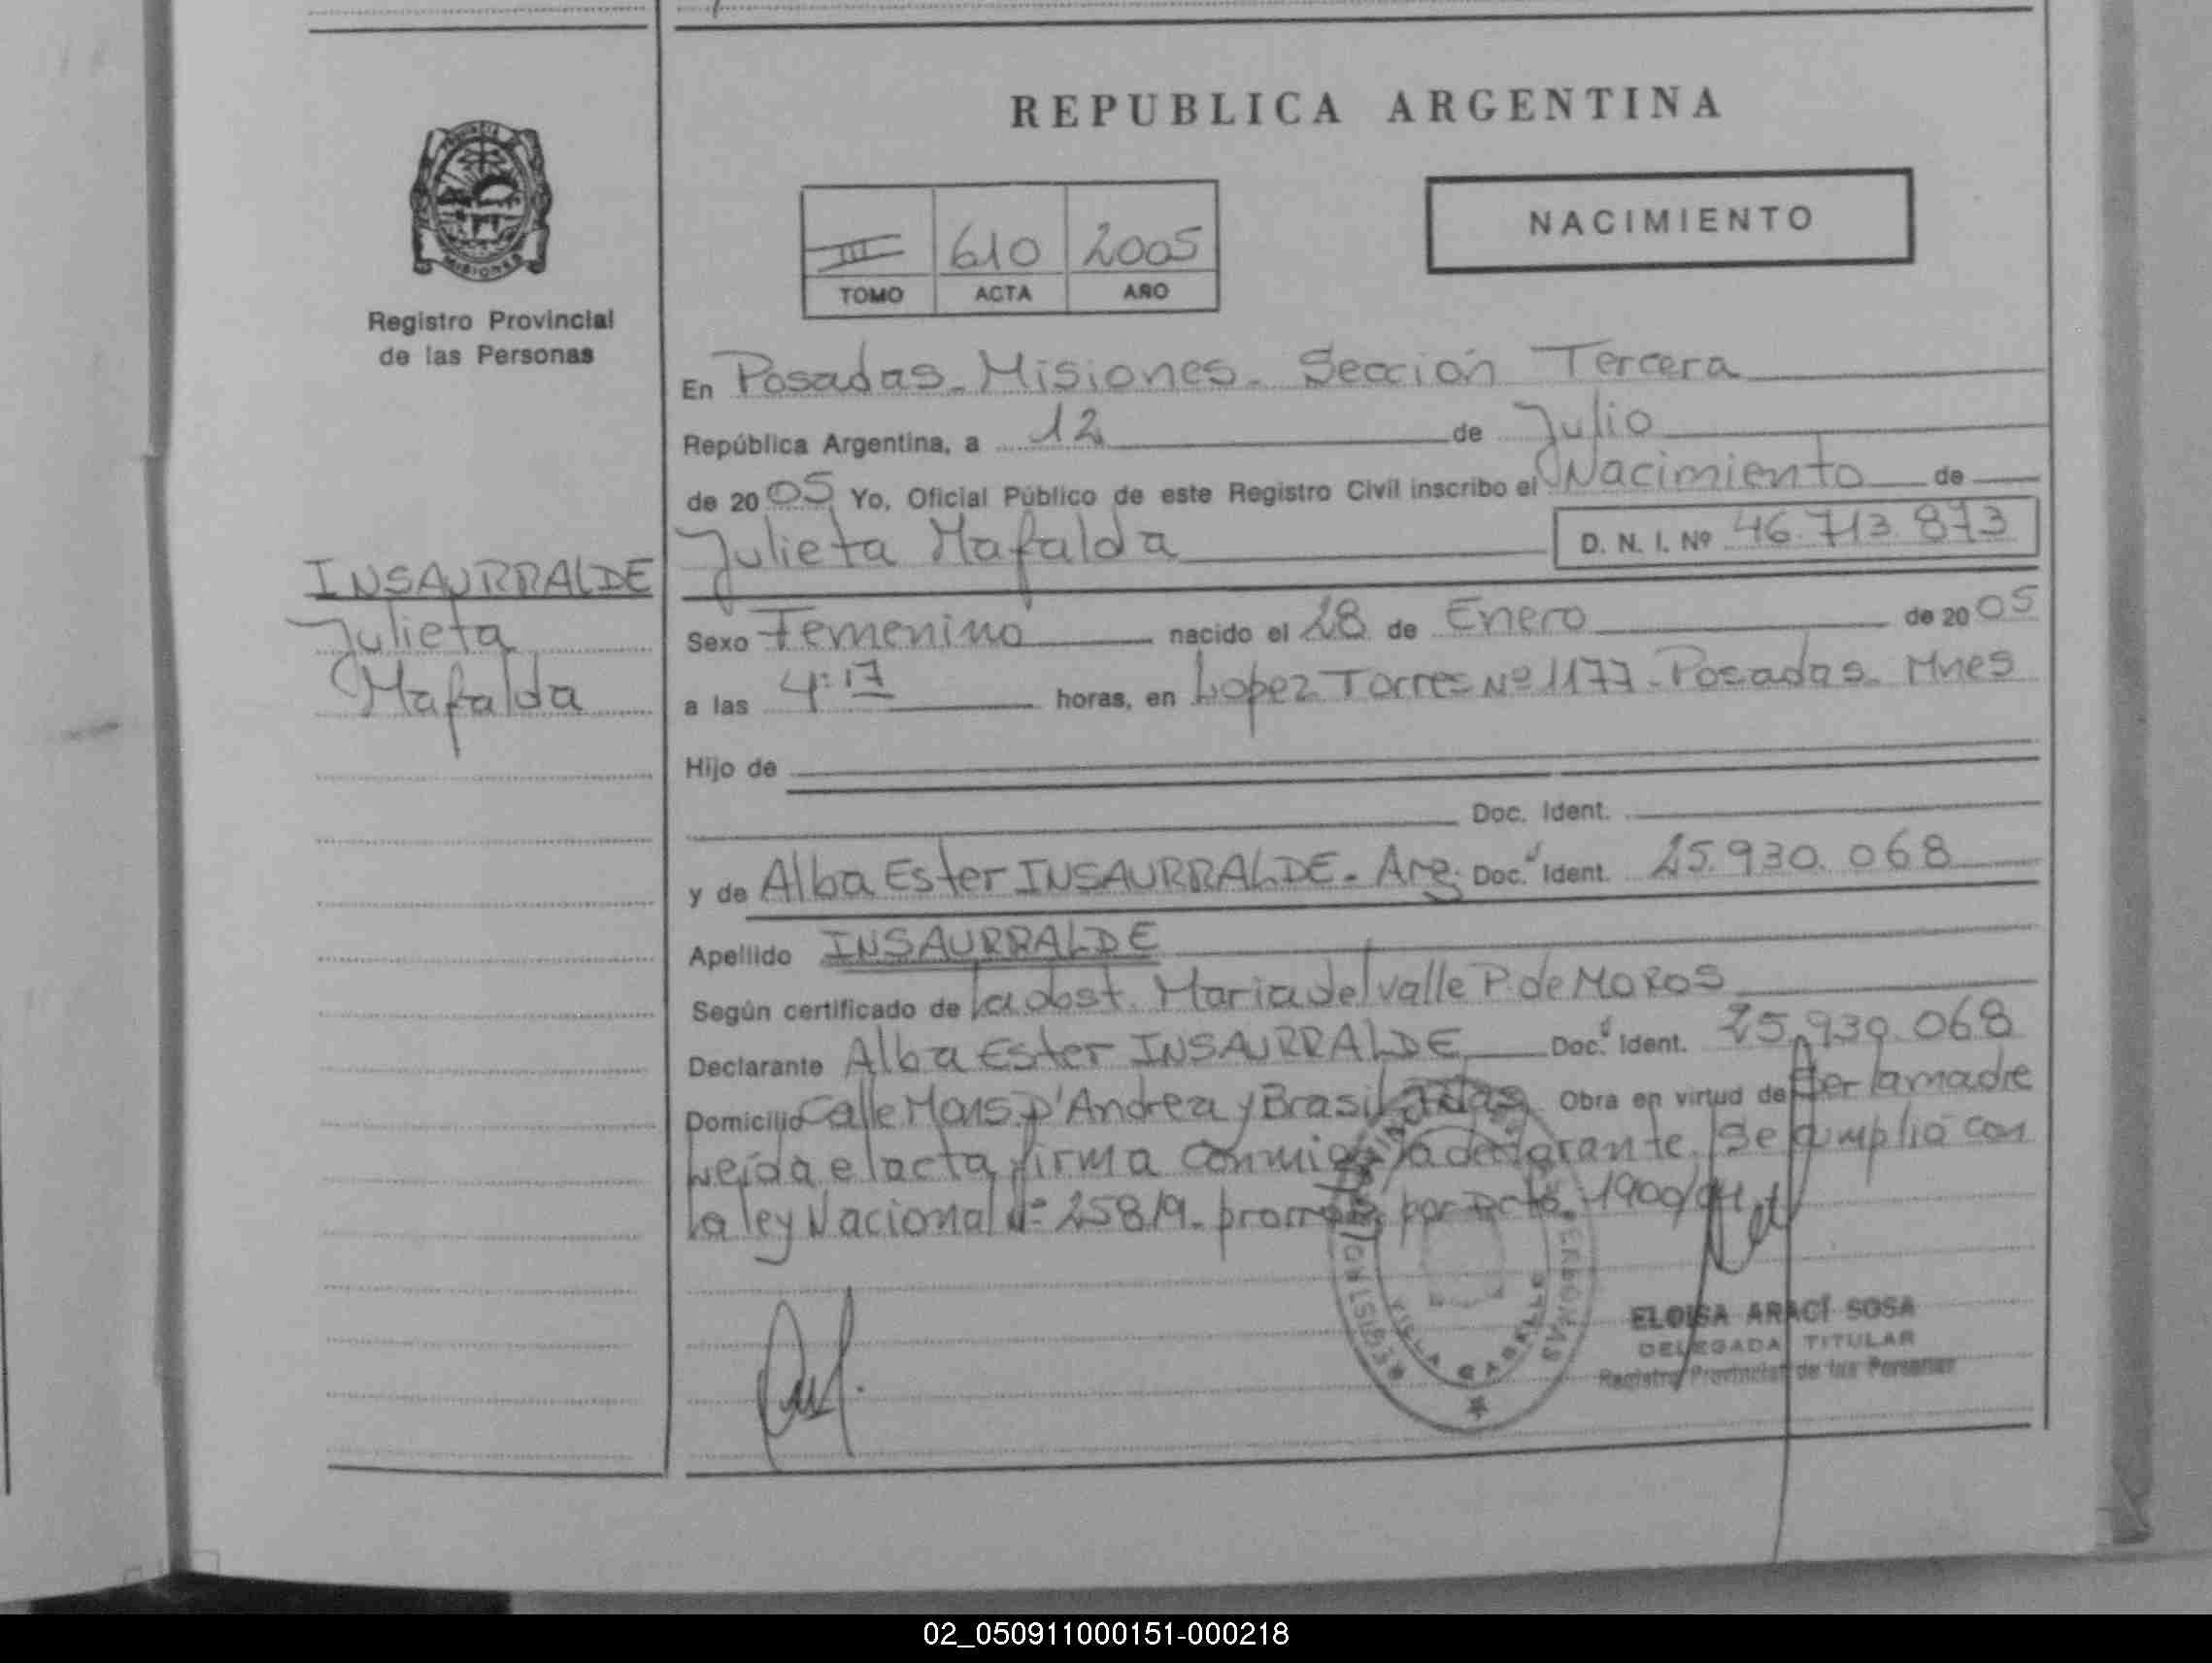 REPUBLICA ARGENTINA
NACIMIENTO
III 610 2005
TOMO ACTA AÑO
MISIONES
Registro Provincial
de las Personas
En Posadas - Misiones - Sección Tercera
República Argentina, a 12 de Julio
de 2005 Yo, Oficial Público de este Registro Civil inscribo el Nacimiento de
Julieta Mafalda D. N. I. Nº 46.713.873
INSAURRALDE
Julieta
Mafalda
Sexo Femenino nacido el 28 de Enero de 2005
a las 4:17 horas, en Lopez Torres Nº 1177 - Posadas - Mnes
Hijo de
Doc. Ident.
y de Alba Ester INSAURRALDE - Arg. Doc. Ident. 25.930.068
Apellido INSAURRALDE
Según certificado de la obst. Maria del Valle P. de MOROS
Declarante Alba Ester INSAURRALDE Doc. Ident. 25.930.068
Domicilio Calle Mons. D'Andrea y Brasil Obra en virtud de Ser la madre
Leída el acta, firma conmigo la declarante. Se cumplió con
la ley Nacional Nº 25819. por Dcto. 1900/04
REGISTRO PERSONAS
VILLA CABELLO
ELOISA ARACÍ SOSA
DELEGADA TITULAR
Registro Provincial de las Personas
02_050911000151-000218